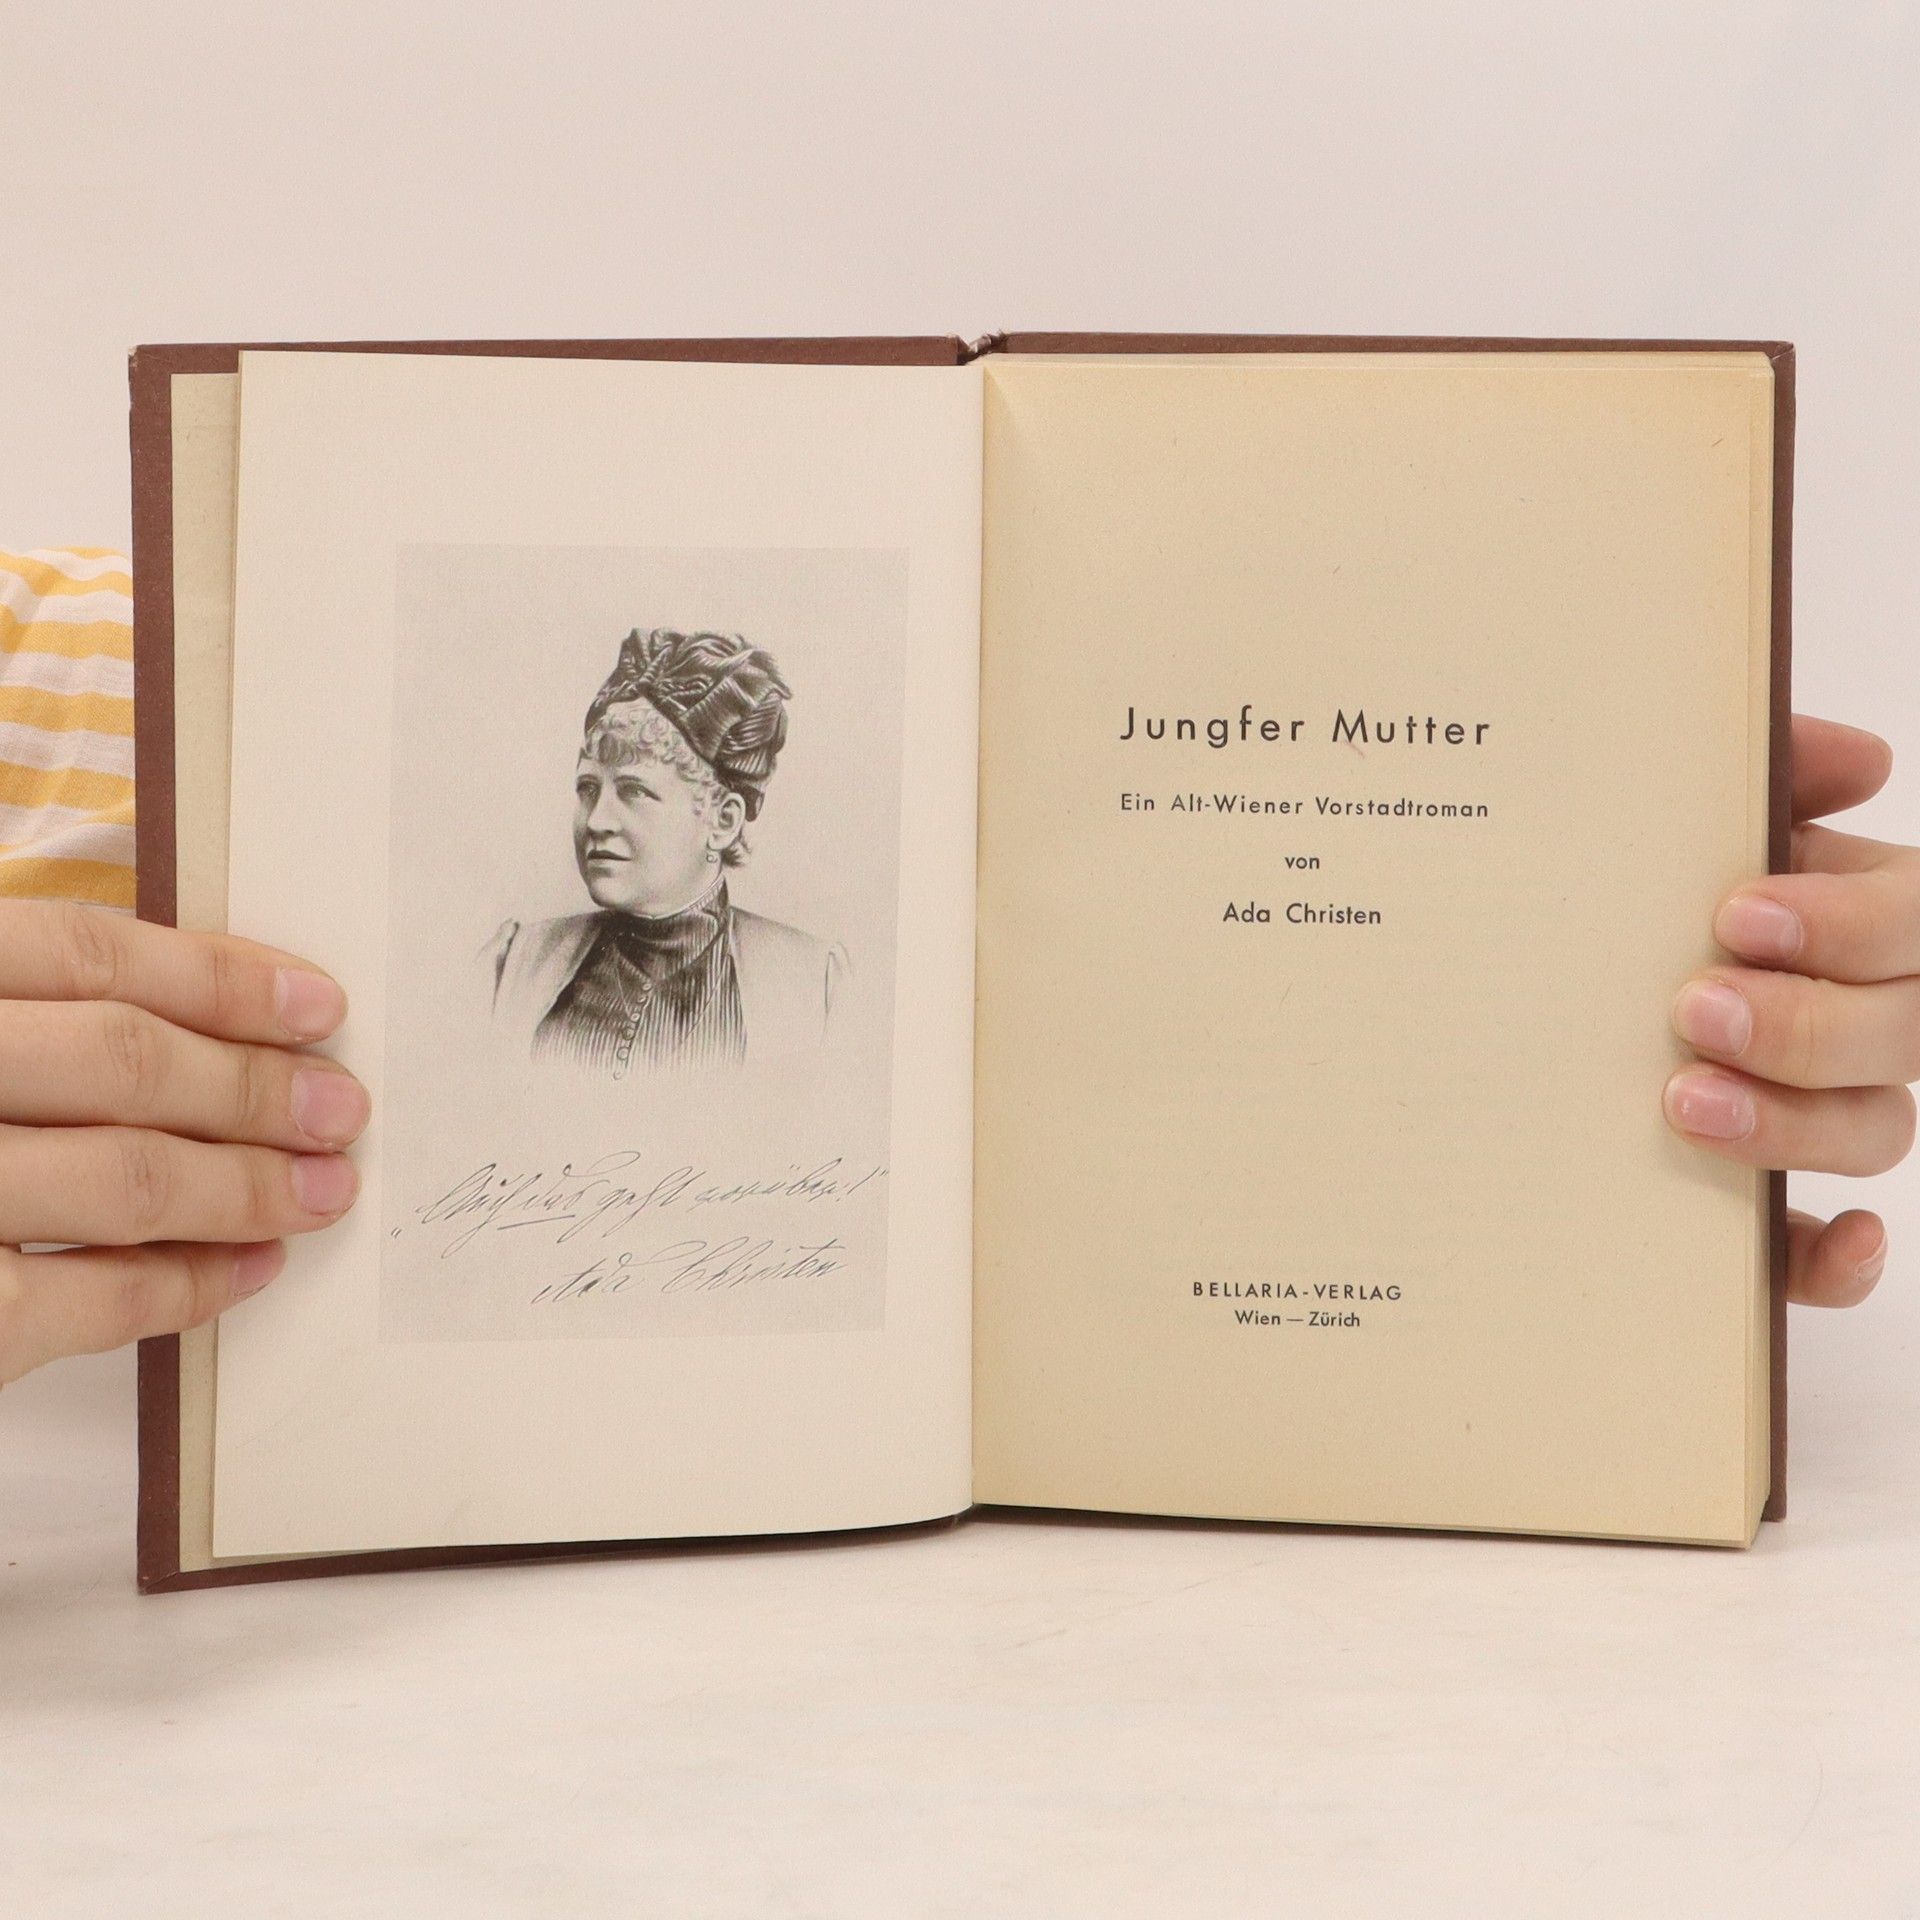 „Auch das geht vorüber!"
Ada Christen
Jungfer Mutter
Ein Alt-Wiener Vorstadtroman
von
Ada Christen
BELLARIA-VERLAG
Wien — Zürich